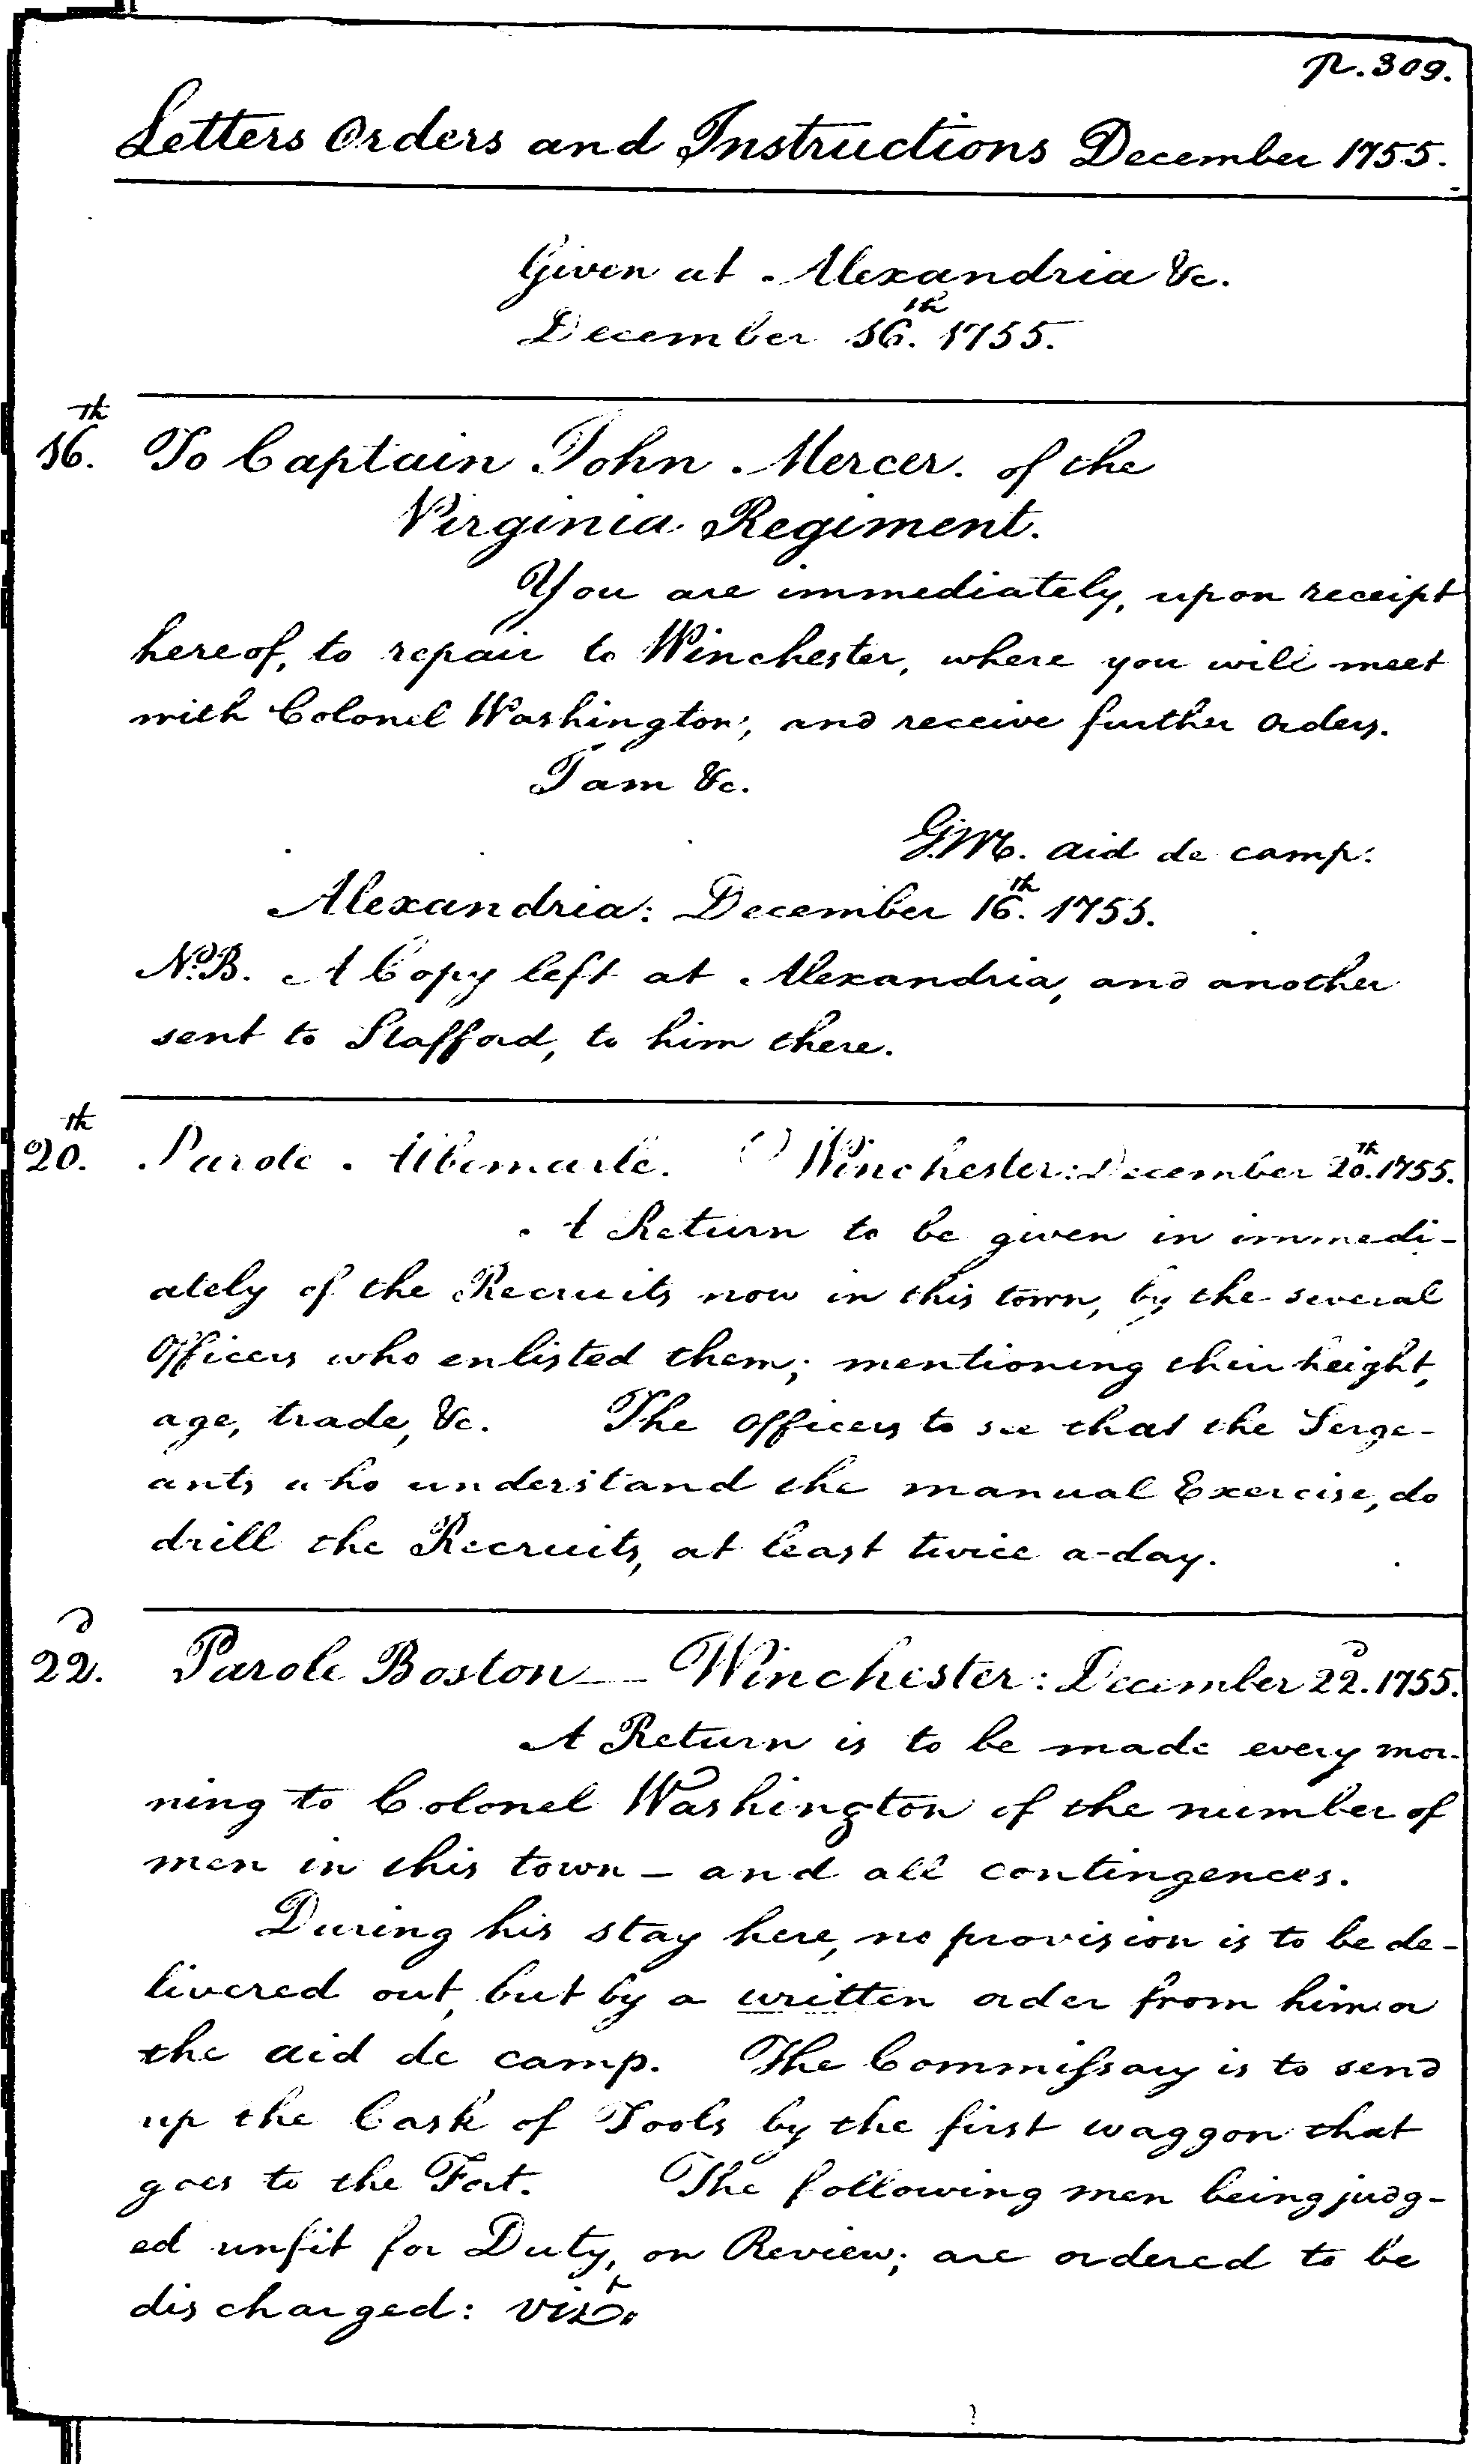 p. 309.
Letters Orders and Instructions December 1755.
Given at Alexandria &c.
December 16th. 1755.
16th. To Captain John Mercer. of the
Virginia Regiment.
You are immediately, upon receipt
hereof, to repair to Winchester, where you will meet
with Colonel Washington; and receive further Orders.
I am &c.
G:M. aid de camp.
Alexandria: December 16th. 1755.
N.B. A Copy left at Alexandria, and another
sent to Stafford, to him there.
20th. Parole Albemarle. Winchester: December 20th. 1755.
A Return to be given in immedi-
ately of the Recruits now in this town, by the several
Officers who enlisted them; mentioning their height,
age, trade, &c. The Officers to see that the Serge-
ants who understand the manual Exercise, do
drill the Recruits, at least twice a-day.
22d. Parole Boston -- Winchester: December 22d. 1755.
A Return is to be made every mor-
ning to Colonel Washington of the number of
men in this town - and all contingences.
During his stay here, no provision is to be de-
livered out, but by a written order from him or
the aid de camp. The Commissary is to send
up the Cask of Tools by the first waggon that
goes to the Fort. The following men being judg-
ed unfit for Duty, on Review; are ordered to be
discharged: vizt.